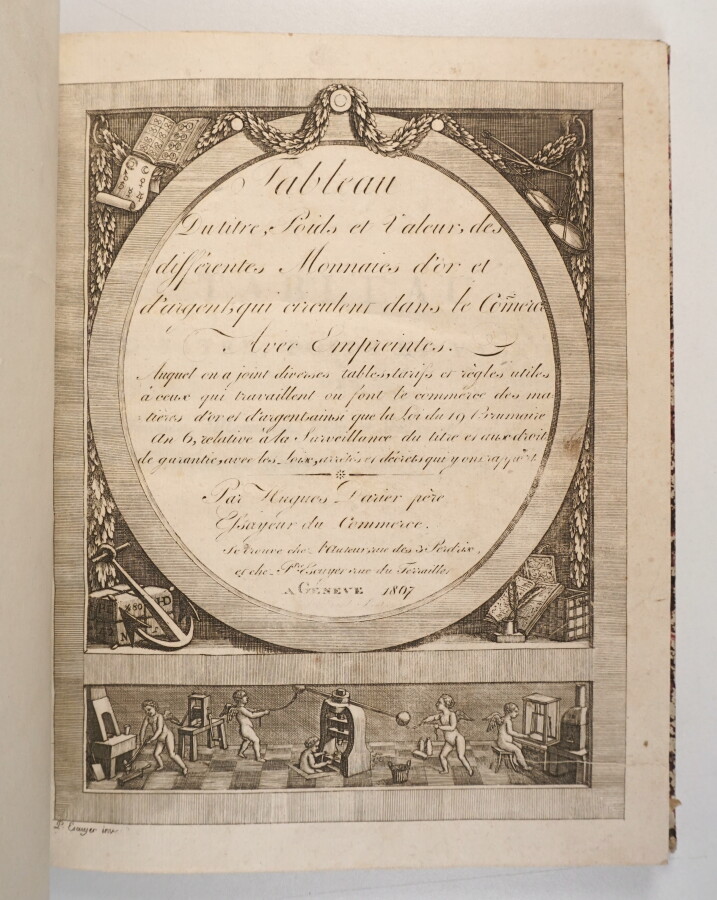 Tableau
Du titre, Poids et Valeur, des
différentes Monnaies d'or et
d'argent, qui circulent dans le Com̄erce
Avec Empreintes.
Auquel on a joint diverses tables, tarifs et règles utiles
à ceux qui travaillent ou font le commerce des ma
tières d'or et d'argent, ainsi que la Loi du 19 Brumaire
An 6, relative à la Surveillance du titre et aux droits
de garantie, avec les Loix, arrêtés et décrets qui y ont rapport.
Par Hugues Darier père
Essayeur du Commerce.
Se trouve chez l'Auteur, rue des 3 Perdrix,
et chez Pre. Escuyer rue du Terraillet
A GENEVE 1807
HD
P. Escuyer inv.